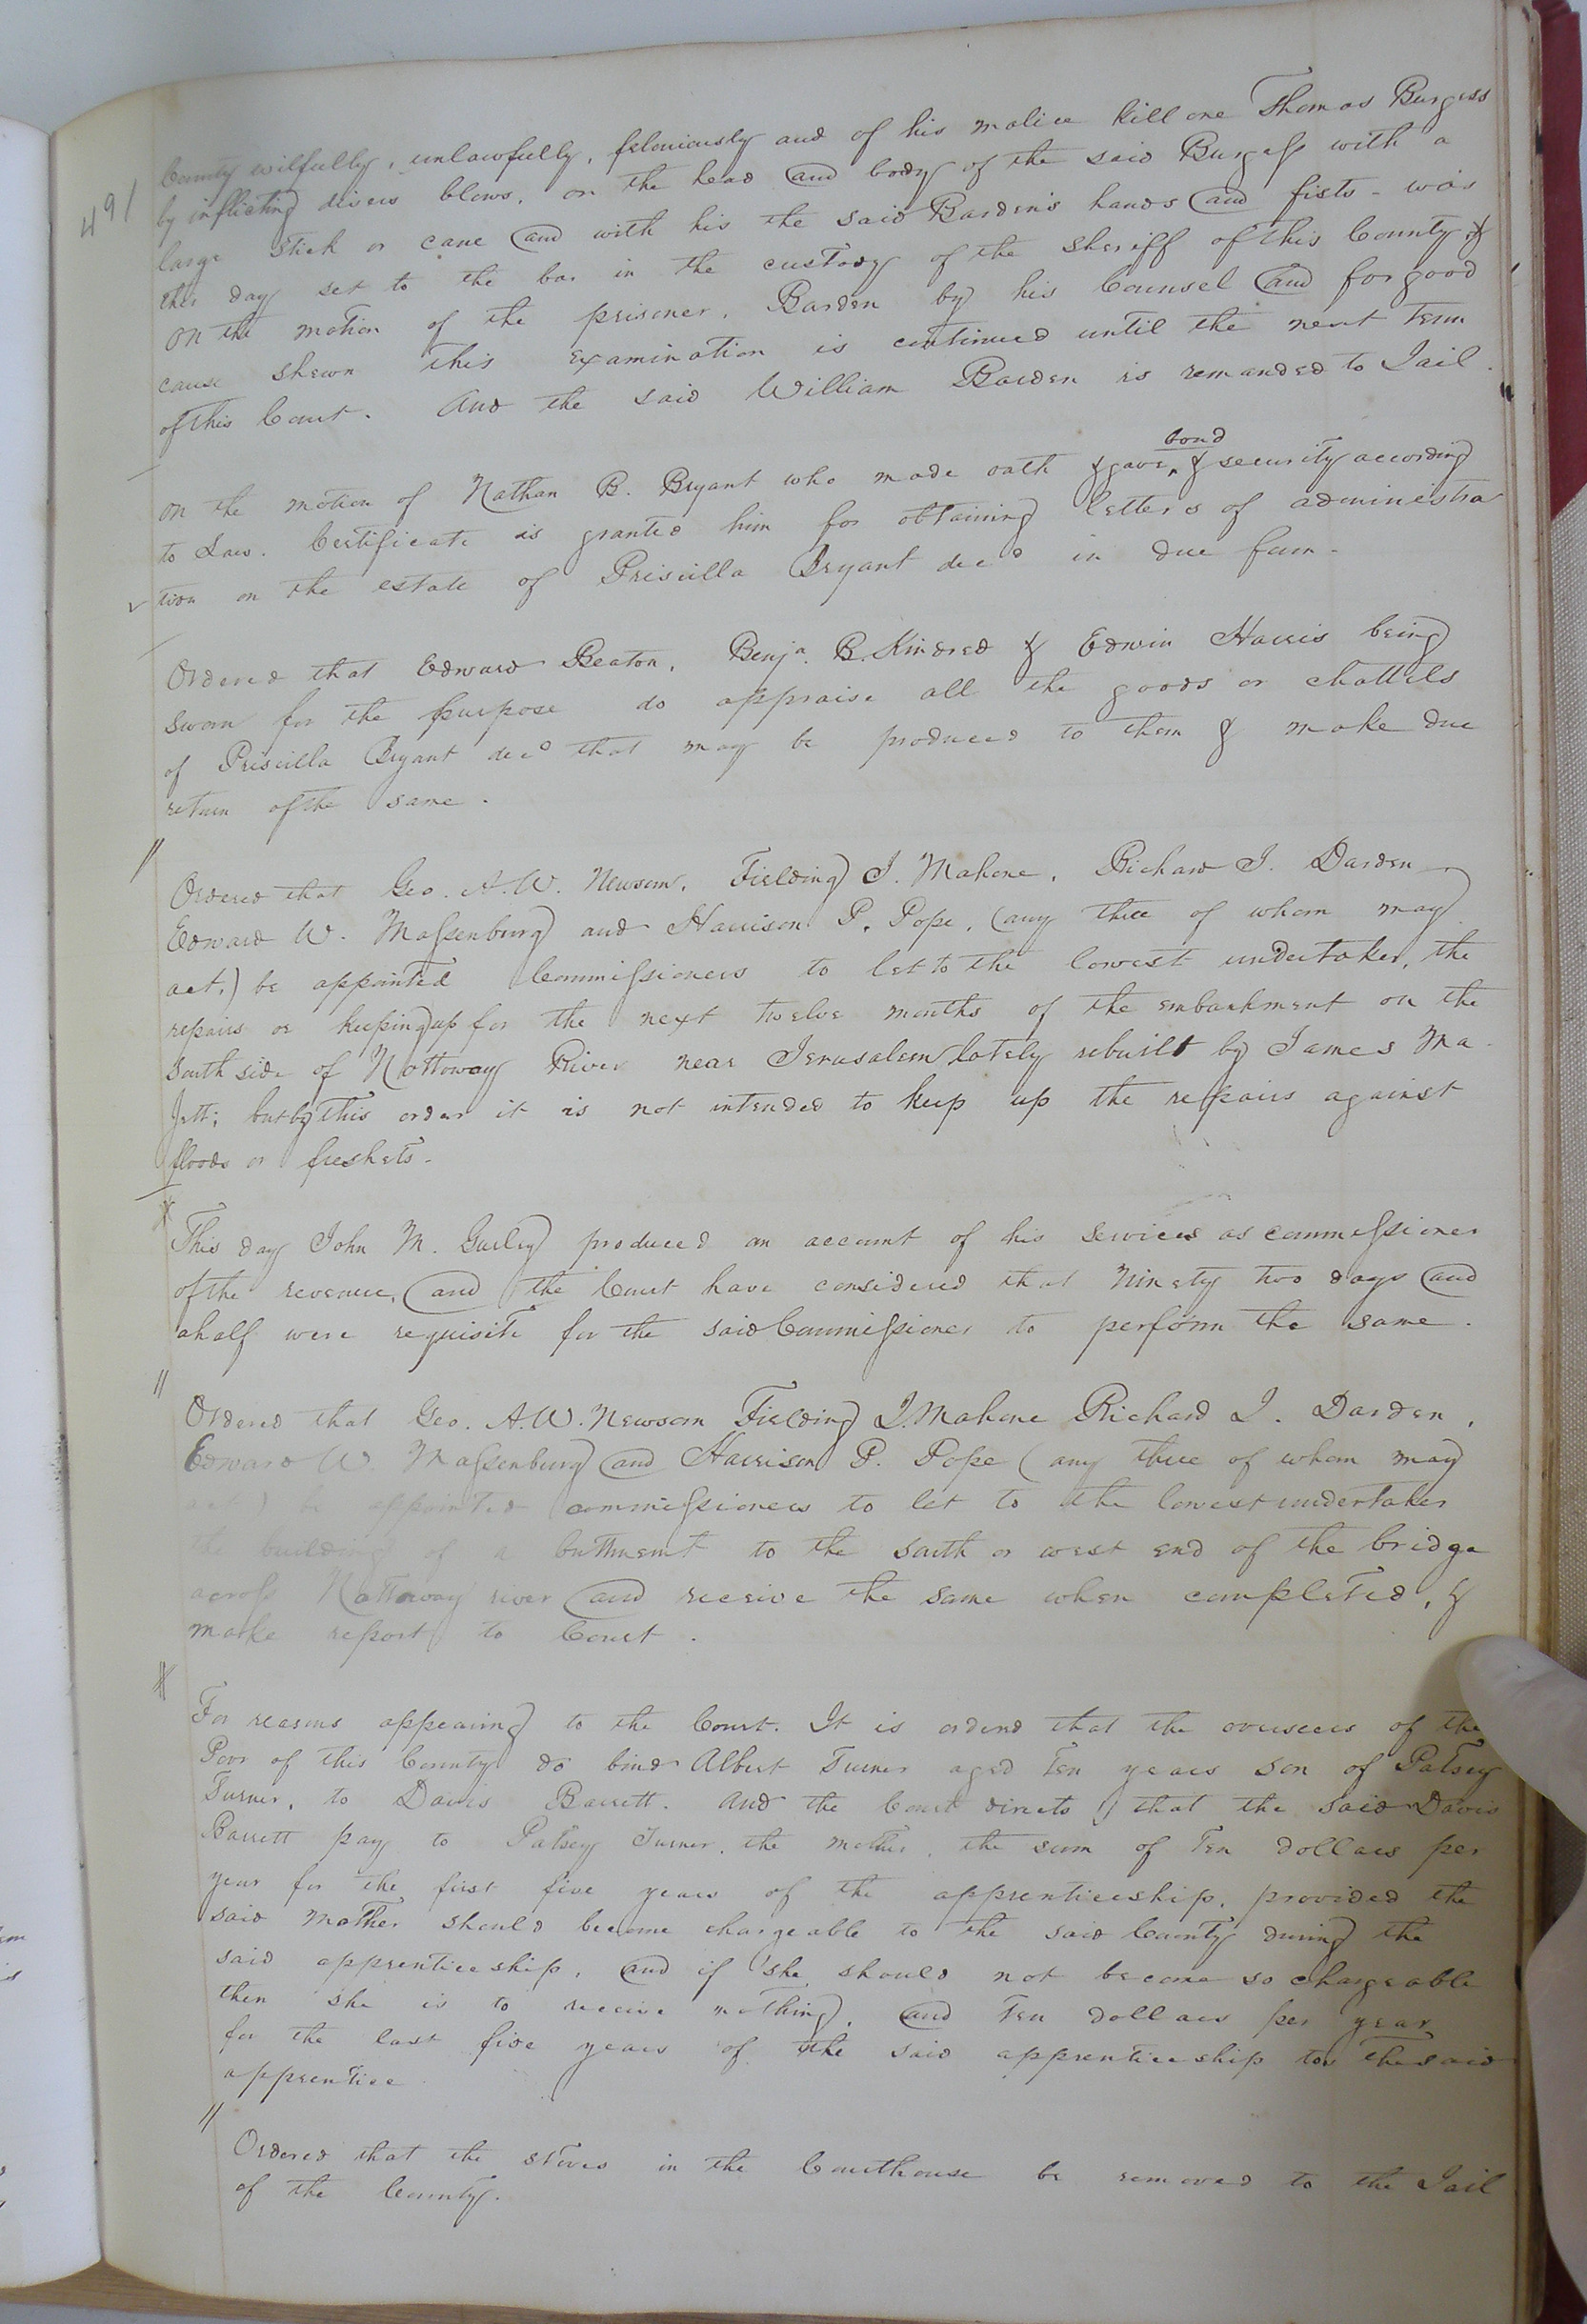 491
County wilfully, unlawfully, feloniously and of his malice kill one Thomas Burgess
by inflicting divers blows, on the head and body of the said Burgess with a
large stick or cane and with his the said Barden's hands and fists - was
this day set to the bar in the custody of the Sheriff of this County &
On the motion of the prisoner, Barden by his Counsel and for good
cause shewn this examination is continued until the next Term
of this Court. And the said William Barden is remanded to Jail.
On the motion of Nathan B. Bryant who made oath & gave bond & security according
to Law. Certificate is granted him for obtaining letters of administra
tion on the estate of Priscilla Bryant decd in due form -
Ordered that Edward Beaton, Benja. B. Kindred & Edwin Harris being
sworn for the purpose do appraise all the goods or chattels
of Priscilla Bryant decd that may be produced to them & make due
return of the same.
Ordered that Geo. A. W. Newsom, Fielding J. Mahone, Richard J. Darden
Edward W. Massenburg and Harrison P. Pope, (any three of whom may
act,) be appointed Commissioners to let to the lowest undertaker, the
repairs or keeping up for the next twelve months of the embankment on the
South side of Nottoway River near Jerusalem lately rebuilt by James Ma
gett; but by this order it is not intended to keep up the repairs against
floods or freshets -
This day John M. Gurley produced an account of his services as commissioner
of the revenue, and the Court have considered that Ninety two days and
a half were requisite for the said Commissioner to perform the same.
Ordered that Geo. A. W. Newsom Fielding J. Mahone Richard J. Darden,
Edward W Massenburg and Harrison P. Pope (any three of whom may
act) be appointed commissioners to let to the lowest undertaker
the building of a buttment to the south or west end of the bridge
across Nottoway river and receive the same when completed, &
make report to Court.
For reasons appearing to the Court. It is ordered that the overseers of the
Poor of this County do bind Albert Turner aged Ten years son of Patsey
Turner, to Davis Barrett. And the Court directs that the said Davis
Barrett pay to Patsey Turner, the mother, the sum of Ten dollars per
year for the first five years of the apprenticeship, provided the
said mother should become chargeable to the said County during the
said apprenticeship, and if she should not become so chargeable
then she is to receive nothing, and Ten dollars per year
for the last five years of the said apprenticeship to the said
apprentice
Ordered that the stoves in the Courthouse be removed to the Jail
of the County.